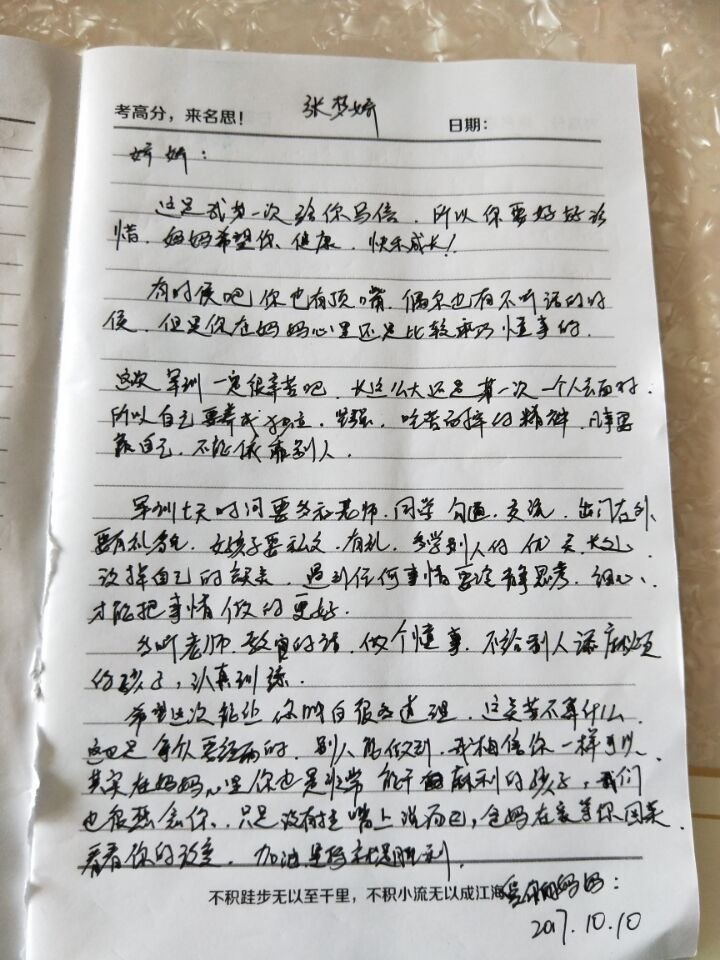 考高分，来名思！ 张梦婷 日期：
婷婷：
这是我第一次给你写信，所以你要好好珍
惜，妈妈希望你、健康、快乐成长！
有时候吧你也有顶嘴，偶尔也有不听话的时
候，但是你在妈妈心里还是比较乖巧懂事的。
这次军训一定很辛苦吧，长这么大还是第一次一个人去面对，
所以自己要养成独立、坚强、吃苦耐劳的精神，凡事要
靠自己，不能依靠别人。
军训七天时间要多和老师、同学沟通、交流，出门在外
要有礼貌，女孩子要斯文，有礼，多学别人的优点、长处，
改掉自己的缺点，遇到任何事情要冷静思考，细心、
才能把事情做的更好。
多听老师、教官的话，做个懂事、不给别人添麻烦
的孩子，认真训练。
希望这次能让你明白很多道理，这点苦不算什么，
这也是每个人要经历的，别人能做到，我相信你一样可以，
其实在妈妈心里你也是非常能干麻利的孩子，我们
也很想念你，只是没有挂嘴上说而已，爸妈在家等你回来，
看看你的改变，加油坚持就是胜利。
不积跬步无以至千里，不积小流无以成江海 爱你的妈妈：
2017.10.10